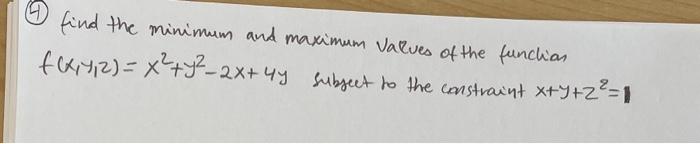 ④ find the minimum and maximum values of the function
f(x,y,z) = x²+y²-2x+4y subject to the constraint x+y+z²=1